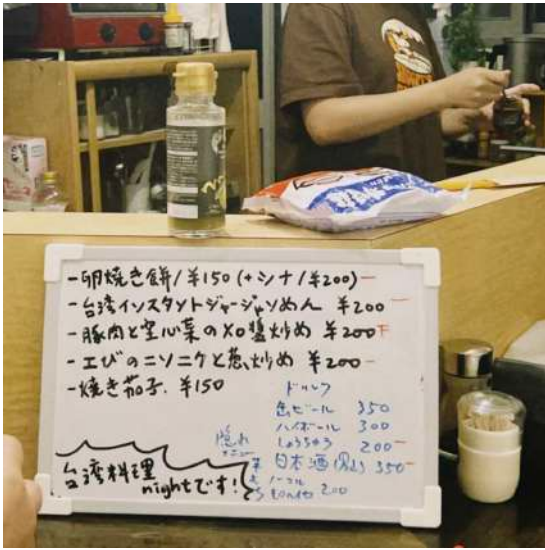 -卵焼き餅/¥150(+シナ/¥200)
-台湾インスタントジャージャンめん ¥200
-豚肉と空心菜のXO醬炒め ¥200
-エビのニンニクと葱炒め ¥200
-焼き茄子. ¥150
ドリンク
缶ビール 350
ハイボール 300
しょうちゅう 200
日本酒 350
隠れ
メニュー
ノーマル
200
台湾料理
nightです!